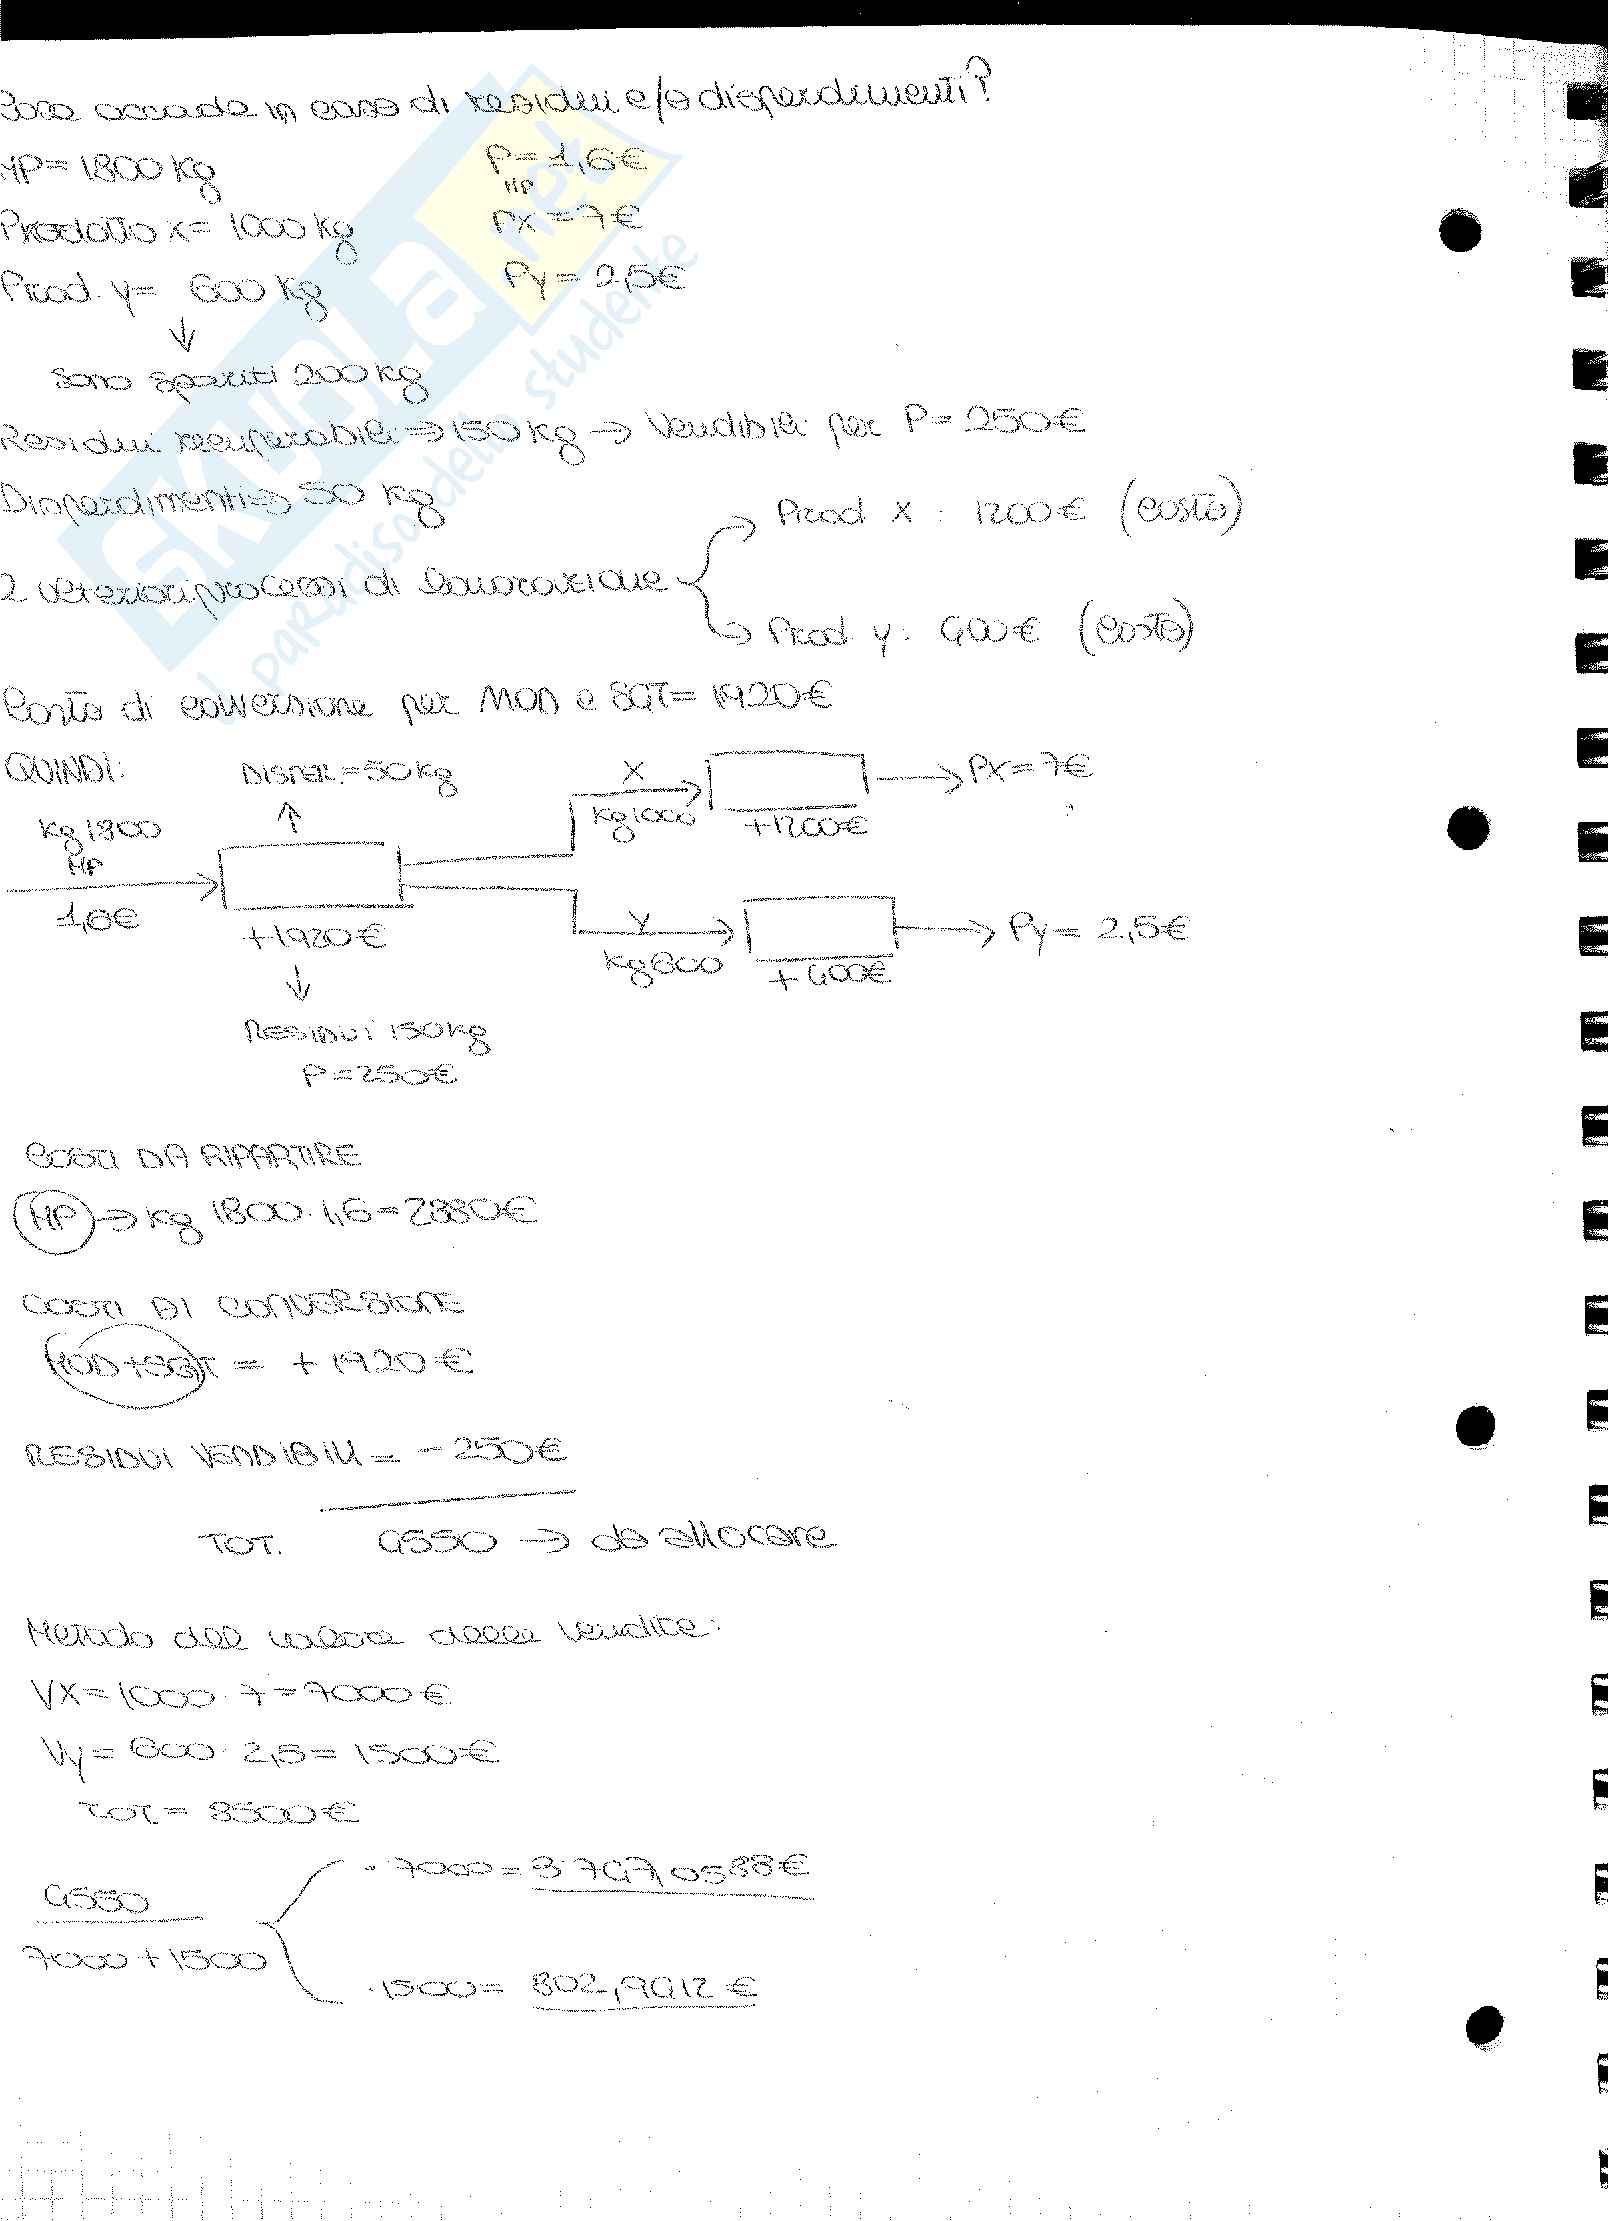 Cosa accade in caso di residui e/o disperdimenti?
MP = 1800 kg P MP = 1,6€
Prodotto x = 1000 kg Px = 7€
Prod. y = 600 kg Py = 2,5€
↓
sono spariti 200 kg
Residui recuperabili → 150 kg → Vendibili per P = 250€
Disperdimenti → 50 kg
Prod X : 1200€ (costo)
2 ulteriori processi di lavorazione
Prod. y : 400€ (costo)
Costo di conversione per MOD e SGT = 1920€
QUINDI:
DISPER. = 50 kg
X
Kg 1000
+1200€
→ PX = 7€
Kg 1800
MP
1,6€
+1920€
Y
Kg 600
+400€
→ Py = 2,5€
RESIDUI 150 kg
P = 250€
COSTI DA RIPARTIRE
MP → kg 1800 · 1,6 = 2880€
COSTI DI CONVERSIONE
MOD+SGT = + 1920€
RESIDUI VENDIBILI = - 250€
TOT. 4550 → da allocare
Metodo del valore delle vendite:
VX = 1000 · 7 = 7000€
Vy = 600 · 2,5 = 1500€
TOT. = 8500€
4550
7000 + 1500
· 7000 = 3747,0588€
· 1500 = 802,9412€
SKUOLA.net
il paradiso dello studente